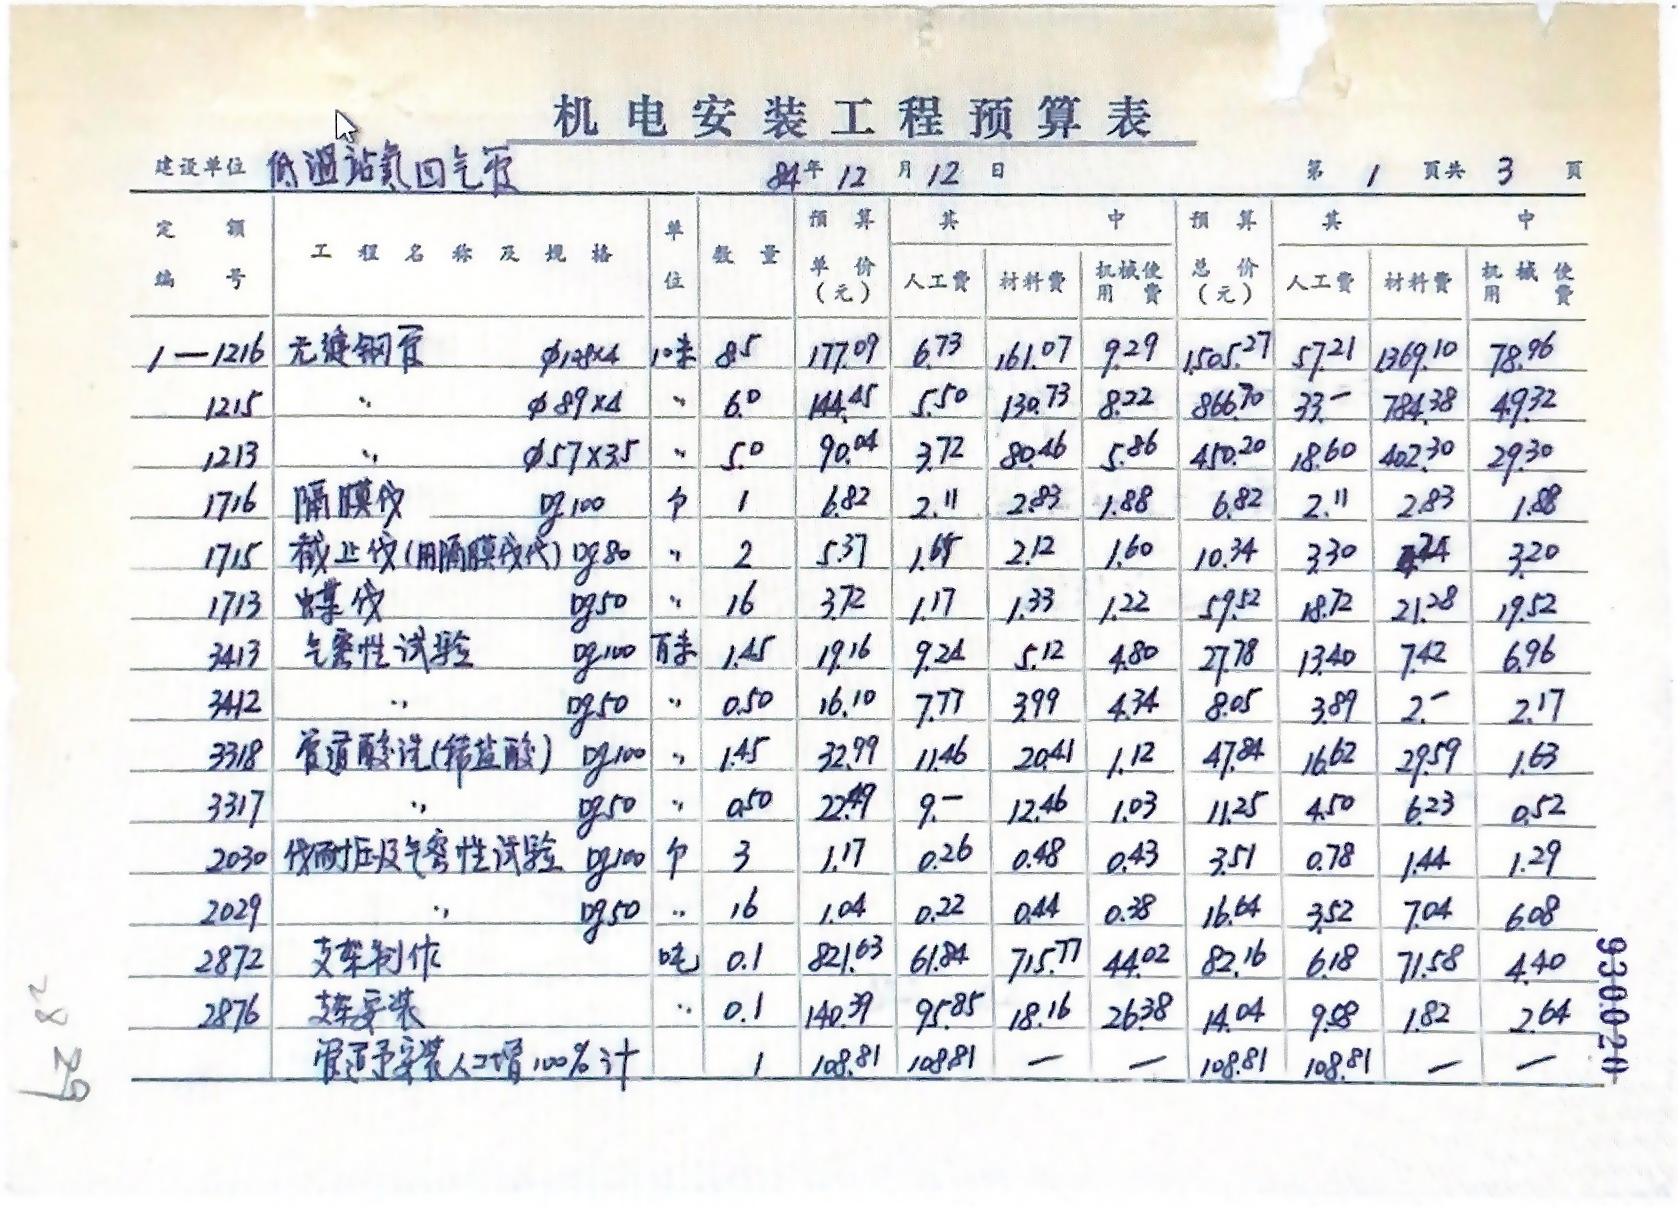 机电安装工程预算表
建设单位 低温站氦回气管 84年12月12日 第1页共3页
定额编号 工程名称及规格 单位 数量 预算单价(元) 其中 预算总价(元) 其中
人工费 材料费 机械使用费 人工费 材料费 机械使用费
1—1216 无缝钢管 φ128×4 10米 8.5 177.09 6.73 161.07 9.29 1505.27 57.21 1369.10 78.96
1215 〃 φ89×4 〃 6.0 144.45 5.50 130.73 8.22 866.70 33.— 784.38 49.32
1213 〃 φ57×3.5 〃 5.0 90.04 3.72 80.46 5.86 450.20 18.60 402.30 29.30
1716 隔膜伐 Dg100 个 1 6.82 2.11 2.83 1.88 6.82 2.11 2.83 1.88
1715 截止伐(用隔膜伐代) Dg80 〃 2 5.37 1.65 2.12 1.60 10.34 3.30 3.20
1713 伐 Dg50 〃 16 3.72 1.17 1.33 1.22 59.52 18.72 21.28 19.52
3413 气密性试验 Dg100 百米 1.45 19.16 9.24 5.12 4.80 27.78 13.40 7.42 6.96
3412 〃 Dg50 〃 0.50 16.10 7.77 3.99 4.34 8.05 3.89 2.— 2.17
3318 管道酸洗(稀盐酸) Dg100 〃 1.45 32.99 11.46 20.41 1.12 47.84 16.62 29.59 1.63
3317 〃 Dg50 〃 0.50 22.49 9.— 12.46 1.03 11.25 4.50 6.23 0.52
2030 伐耐压及气密性试验 Dg100 个 3 1.17 0.26 0.48 0.43 3.51 0.78 1.44 1.29
2029 〃 Dg50 〃 16 1.04 0.22 0.44 0.38 16.64 3.52 7.04 6.08
2872 支架制作 吨 0.1 821.63 61.84 715.77 44.02 82.16 6.18 71.58 4.40
2876 支架安装 〃 0.1 140.39 95.85 18.16 26.38 14.04 9.58 1.82 2.64
管道予安装人工增100%计 1 108.81 108.81 — — 108.81 108.81 — —
930020